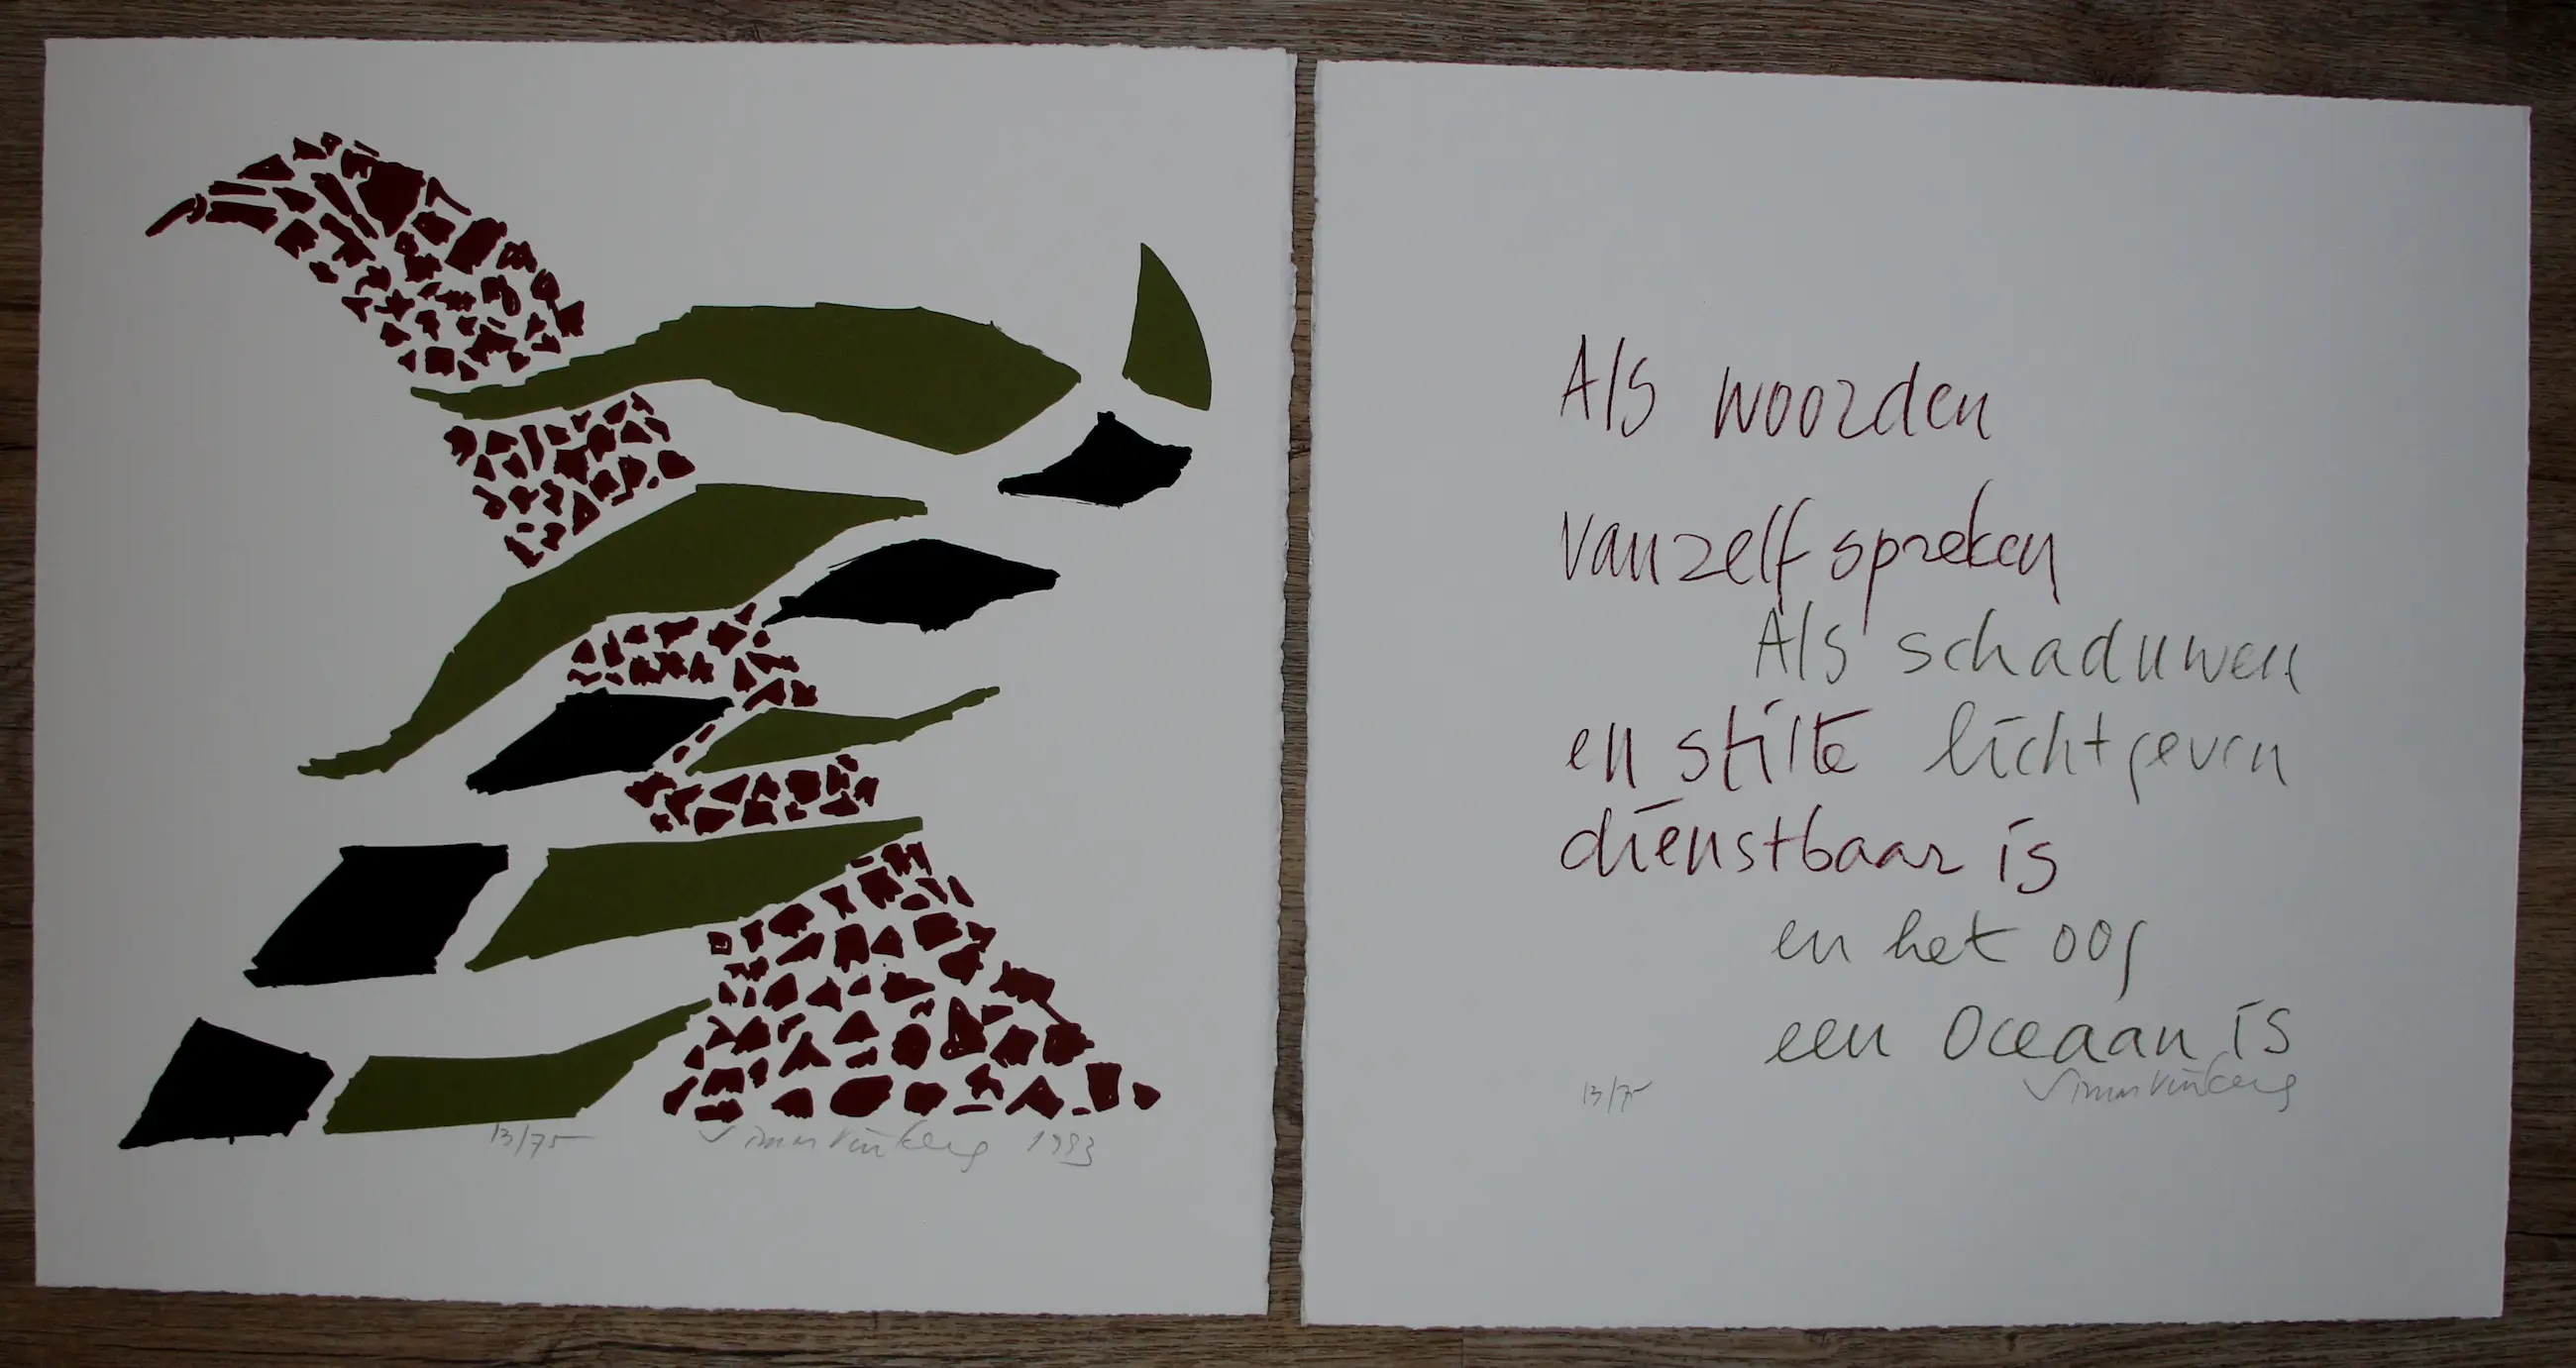 13/75 Simon Vinkenoog 1993
Als woorden
vanzelf spreken
Als schaduwen
en stilte lichtgeven
dienstbaar is
en het oog
een oceaan is
13/75 Simon Vinkenoog